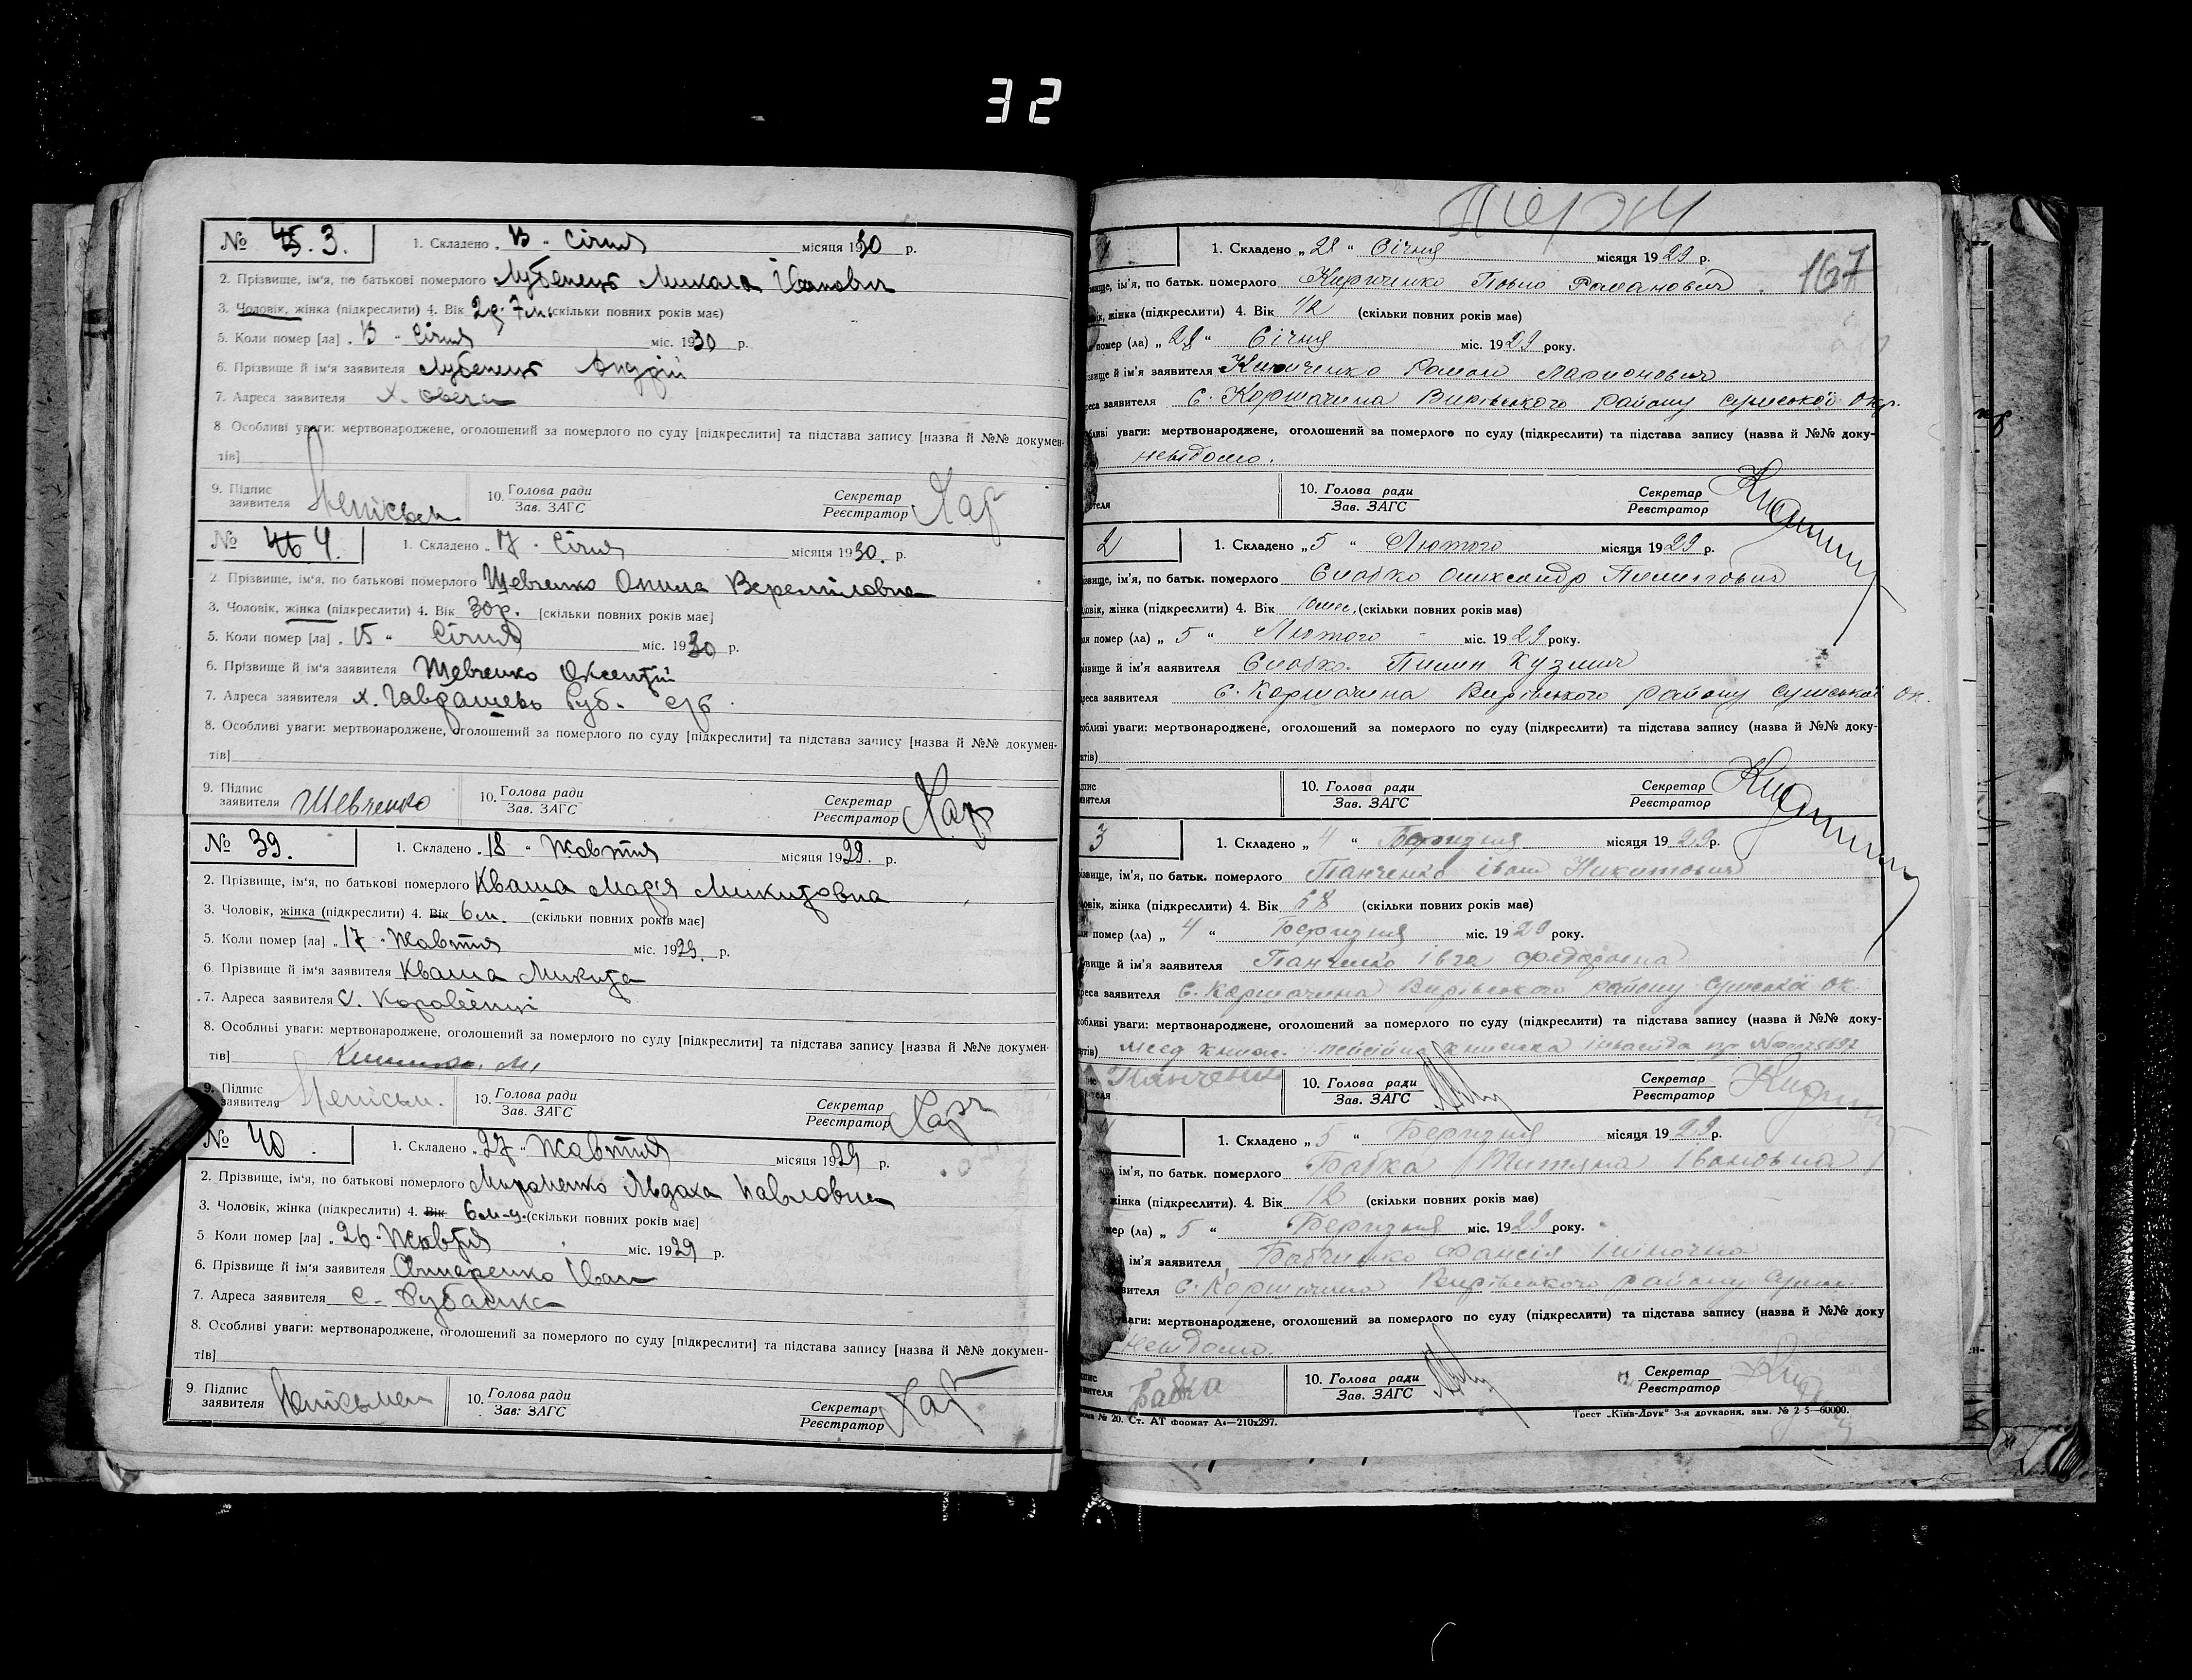 32
№ 45. 3.
1. Складено „ 13 “ Січня місяця 1930 р.
2. Прізвище, ім'я, по батькові померлого Лубенець Микола Іванович
3. Чоловік, жінка (підкреслити) 4. Вік 2р. 7 м. (скільки повних років має)
5. Коли помер [ла] „ 13 “ Січня міс. 1930 р.
6. Прізвище й ім'я заявителя Лубенець Андрій
7. Адреса заявителя х.
8. Особливі уваги: мертвонароджене, оголошений за померлого по суду [підкреслити] та підстава запису [назва й №№ докумен-
тів]
9. Підпис заявителя
10. Голова ради Зав. ЗАГС
Секретар Реєстратор Хар
№ 46 4.
1. Складено „ 17 “ Січня місяця 1930. р.
2. Прізвище, ім'я, по батькові померлого Шевченко
3. Чоловік, жінка (підкреслити) 4. Вік 30р. [скільки повних років має]
5. Коли помер [ла] „ 15 “ Січня міс. 1930 р.
6. Прізвище й ім'я заявителя Шевченко Оксентій
7. Адреса заявителя х.
8. Особливі уваги: мертвонароджене, оголошений за померлого по суду [підкреслити] та підстава запису [назва й №№ докумен-
тів]
9. Підпис заявителя Шевченко
10. Голова ради Зав. ЗАГС
Секретар Реєстратор Хар
№ 39.
1. Складено „ 18 “ Жовтня місяця 1929. р.
2. Прізвище, ім'я, по батькові померлого Кваша Марія Микитовна
3. Чоловік, жінка (підкреслити) 4. Вік 6 м. (скільки повних років має]
5. Коли помер [ла] „ 17 “ Жовтня міс. 1929. р.
6. Прізвище й ім'я заявителя Кваша Микита
7. Адреса заявителя С. Коровенці
8. Особливі уваги: мертвонароджене, оголошений за померлого по суду [підкреслити] та підстава запису [назва й №№ докумен-
тів]
9. Підпис заявителя
10. Голова ради Зав. ЗАГС
Секретар Реєстратор Хар
№ 40.
1. Складено „ 27 “ Жовтня місяця 1929 р.
2. Прізвище, ім'я, по батькові померлого Мироненко Явдоха Павловна
3. Чоловік, жінка (підкреслити) 4. Вік 6 м-ц. (скільки повних років має]
5 Коли помер [ла] „ 26 “ Жовтня міс. 1929 р.
6. Прізвище й ім'я заявителя Іван
7. Адреса заявителя с. Рубанка
8. Особливі уваги: мертвонароджене, оголошений за померлого по суду [підкреслити] та підстава запису [назва й №№ докумен-
тів]
9. Підпис заявителя
10. Голова ради Зав: ЗАГС
Секретар Реєстратор Хар
167
1. Складено „ 28 “ Січня місяця 1929 р.
ім'я, по батьк. померлого Кириченко Павло Романович
жінка (підкреслити) 4. Вік 1/2 (скільки повних років має)
помер (ла) „ 28 “ Січня міс. 1929 року.
й ім'я заявителя Кириченко Роман Ларионович
заявителя С. Коршачина Вирівського району Сумської Окр.
уваги: мертвонароджене, оголошений за померлого по суду (підкреслити) та підстава запису (назва й №№ доку-
невідомо.
10. Голова ради Зав. ЗАГС
Секретар Реєстратор
2
1. Складено „ 5 “ Лютого місяця 1929 р.
ім'я, по батьк. померлого Слабко Олександр Пилипович
жінка (підкреслити) 4. Вік 10 мес. (скільки повних років має)
помер (ла) „ 5 “ Лютого міс. 1929 року.
й ім'я заявителя Слабко Пилип Кузмич
заявителя С. Коршачина Вирівського району Сумської Ок.
уваги: мертвонароджене, оголошений за померлого по суду (підкреслити) та підстава запису (назва й №№ доку-
10. Голова ради Зав. ЗАГС
Секретар Реєстратор
3
1. Складено „ 4 “ Березня місяця 1929 р.
ім'я, по батьк. померлого Панченко Іван Никитович
жінка (підкреслити) 4. Вік 68 (скільки повних років має)
помер (ла) „ 4 “ Березня міс. 1929 року.
й ім'я заявителя Панченко Івга Федоровна
заявителя С. Коршачина Вирівського району Сумської Ок
уваги: мертвонароджене, оголошений за померлого по суду (підкреслити) та підстава запису (назва й №№ доку-
книжка
Панченко
10. Голова ради Зав. ЗАГС
Секретар Реєстратор
1. Складено „ 5 “ Березня місяця 1929 р.
ім'я, по батьк. померлого Бабка Титяна Івановна
жінка (підкреслити). 4. Вік 12 (скільки повних років має)
(ла) „ 5 “ Березня міс. 1929 року.
ім'я заявителя
С. Коршачина Вирівського району Сумс.
уваги: мертвонароджене, оголошений за померлого по суду (підкреслити) та підстава запису (назва й №№ доку
невідомо.
Бабка
10. Голова ради Зав. ЗАГС
Секретар Реєстратор
№ 20. Ст. АТ формат А4—210x297.
Трест „Київ-Друк“ 3-я друкарня, зам. № 2 5—60000.